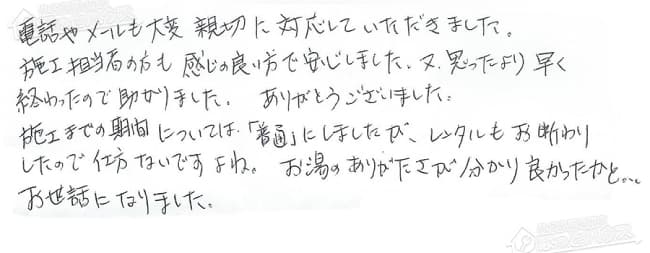 電話やメールも大変親切に対応していただきました。
施工担当者の方も感じの良い方で安心しました。又、思ったより早く
終わったので助かりました。ありがとうございました。
施工までの期間については「普通」にしましたが、レンタルもお断わり
したので仕方ないですよね。お湯のありがたさが分かり良かったかと…
お世話になりました。